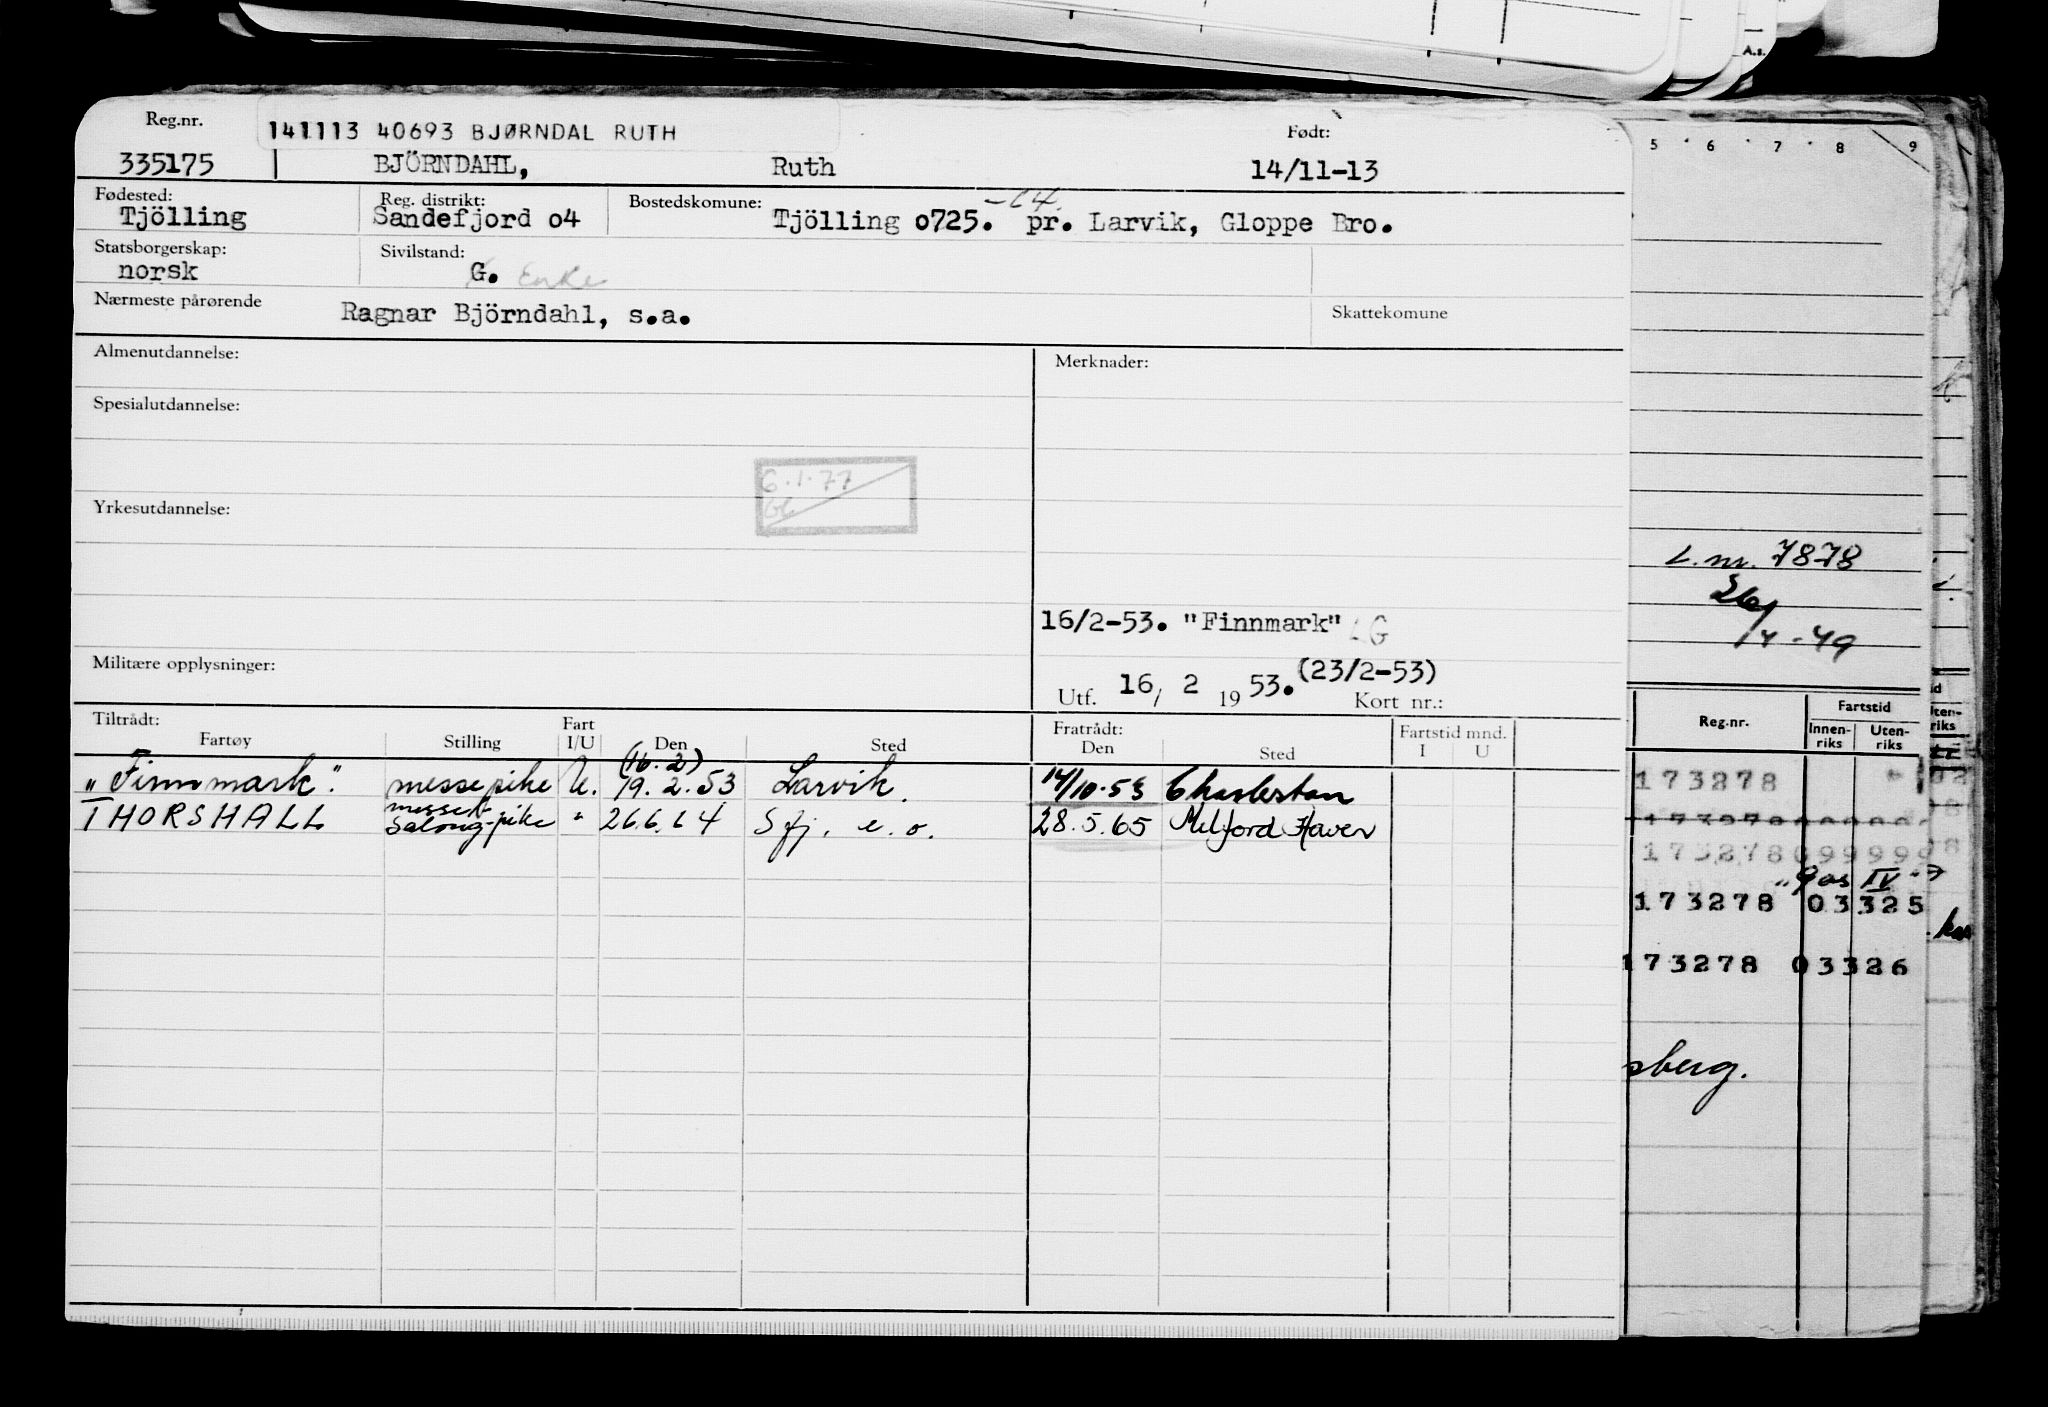 A.s.
Reg.nr. 141113 40693 BJØRNDAL RUTH Født:
335175 BJÖRNDAHL, Ruth 14/11-13
Fødested: Reg. distrikt: Bostedskomune: -64.
Tjölling Sandefjord o4 Tjölling o725. pr. Larvik, Gloppe Bro.
Statsborgerskap: Sivilstand:
norsk G. Enke
Nærmeste pårørende Ragnar Björndahl, s.a. Skattekomune
Almenutdannelse: Merknader:
Spesialutdannelse:
6.1.77
Yrkesutdannelse:
16/2-53. "Finnmark" LG
Militære opplysninger:
(23/2-53)
Utf. 16/ 2 19 53. Kort nr.:
Tiltrådt: Fart Fratrådt: Fartstid mnd.
Fartøy Stilling I/U Den Sted Den Sted I U
(16.2)
"Finnmark". messepike U. 19.2.53 Larvik. 14/10-53 Charlestan
THORSHALL messe & Salongpike " 26.6.64 Sfj. e.o. 28.5.65 Milford Haven
5 6 7 8 9
L.nr. 7878
26/
4-49
Reg.nr. Fartstid
Innen-riks Uten-riks
173278
173278099999
"Gas IV"
173278 03325
173278 03326
sberg.